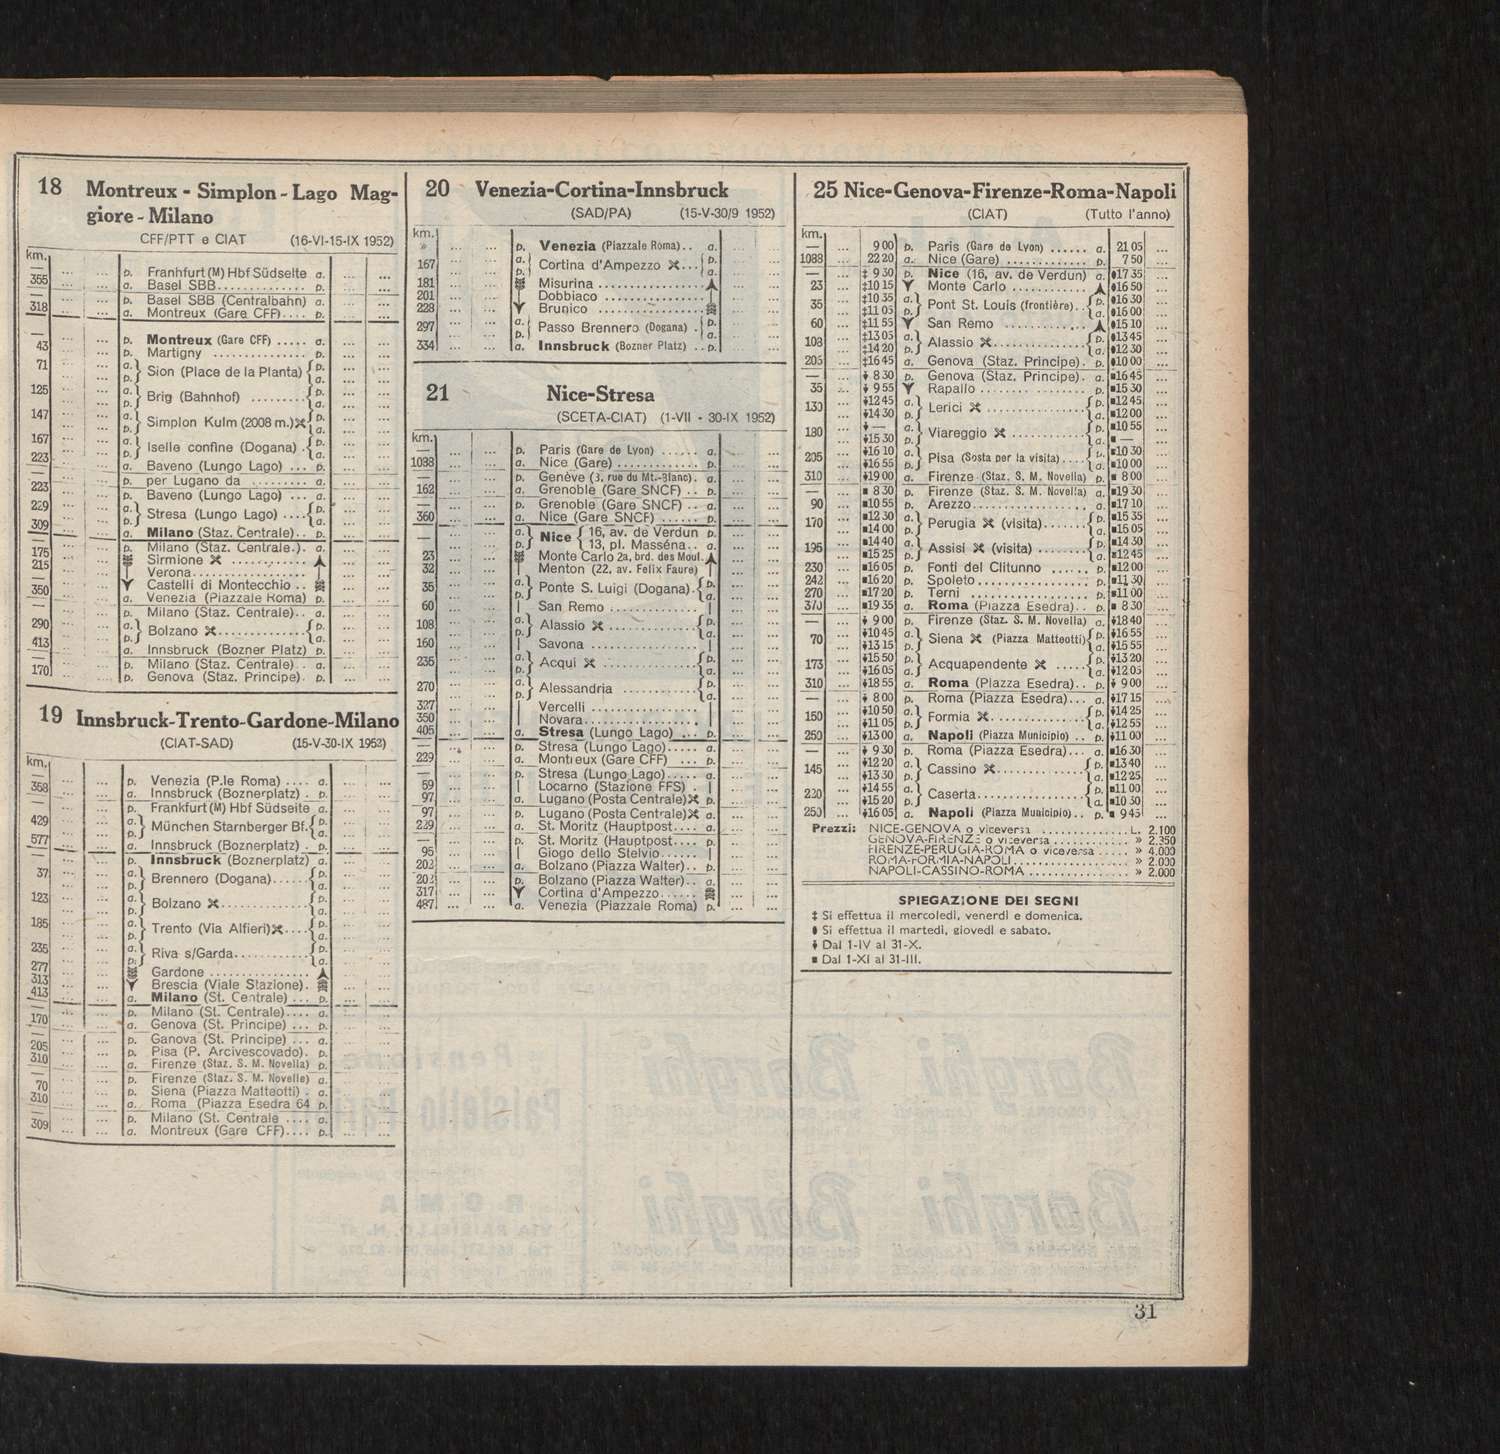 18 Montreux - Simplon - Lago Mag-
giore - Milano
CFF/PTT e CIAT (16-VI-15-IX 1952)
km.
— ... ... p. Franhfurt (M) Hbf Südseite a. ... ...
355 ... ... a. Basel SBB............. p. ... ...
— ... ... p. Basel SBB (Centralbahn) a. ... ...
318 ... ... a. Montreux (Gare CFF).... p. ... ...
— ... ... p. Montreux (Gare CFF) ..... a. ... ...
43 ... ... p. Martigny .............. p. ... ...
71 ... ... a. p. } Sion (Place de la Planta) { p. a. ... ...
125 ... ... a. p. } Brig (Bahnhof) ......... { p. a. ... ...
147 ... ... a. p. } Simplon Kulm (2008 m.) { p. a. ... ...
167 ... ... a. p. } Iselle confine (Dogana) . { p. a. ... ...
223 ... ... a. Baveno (Lungo Lago) ... p. ... ...
— ... ... p. per Lugano da ........ a. ... ...
223 ... ... p. Baveno (Lungo Lago) ... a. ... ...
229 ... ... a. p. } Stresa (Lungo Lago) .... { p. a. ... ...
309 ... ... a. Milano (Staz. Centrale).. p. ... ...
— ... ... p. Milano (Staz. Centrale.). a. ... ...
175 ... ... Sirmione ...........
215 ... ... Verona..................
Castelli di Montecchio ..
350 ... ... a. Venezia (Piazzale Roma) p. ... ...
— ... ... p. Milano (Staz. Centrale).. a. ... ...
290 ... ... a. p. } Bolzano ............. { p. a. ... ...
413 ... ... a. Innsbruck (Bozner Platz) p. ... ...
— ... ... p. Milano (Staz. Centrale).. a. ... ...
170 ... ... p. Genova (Staz. Principe). p. ... ...
19 Innsbruck-Trento-Gardone-Milano
(CIAT-SAD) (15-V-30-IX 1952)
km.
— ... ... p. Venezia (P.le Roma) .... a. ... ...
358 ... ... a. Innsbruck (Boznerplatz) . p. ... ...
— ... ... p. Frankfurt (M) Hbf Südseite a. ... ...
429 ... ... a. p. } München Starnberger Bf. { p. a. ... ...
577 ... ... a. Innsbruck (Boznerplatz) . p. ... ...
— ... ... p. Innsbruck (Boznerplatz) a. ... ...
37 ... ... a. p. } Brennero (Dogana)...... { p. a. ... ...
123 ... ... a. p. } Bolzano ............. { p. a. ... ...
185 ... ... a. p. } Trento (Via Alfieri) .... { p. a. ... ...
235 ... ... a. p. } Riva s/Garda............ { p. a. ... ...
277 ... ... Gardone ................
313 ... ... Brescia (Viale Stazione).
413 ... ... a. Milano (St. Centrale) ... p. ... ...
— ... ... p. Milano (St. Centrale).... a. ... ...
170 ... ... a. Genova (St. Principe) ... p. ... ...
— ... ... p. Ganova (St. Principe) ... a. ... ...
205 ... ... a. Pisa (P. Arcivescovado). p. ... ...
310 ... ... a. Firenze (Staz. S. M. Novella) p. ... ...
— ... ... p. Firenze (Staz. S. M. Novelle) a. ... ...
70 ... ... p. Siena (Piazza Matteotti) . a. ... ...
310 ... ... a. Roma (Piazza Esedra 64 p. ... ...
— ... ... p. Milano (St. Centrale .... a. ... ...
309 ... ... a. Montreux (Gare CFF).... p. ... ...
20 Venezia-Cortina-Innsbruck
(SAD/PA) (15-V-30/9 1952)
km.
» ... ... p. Venezia (Piazzale Roma).. a. ... ...
167 ... ... a. p. } Cortina d'Ampezzo ... { p. a. ... ...
181 ... ... Misurina ................
201 ... ... Dobbiaco ................
228 ... ... Brunico ..................
297 ... ... a. p. } Passo Brennero (Dogana) . { p. a. ... ...
334 ... ... a. Innsbruck (Bozner Platz) .. p. ... ...
21 Nice-Stresa
(SCETA-CIAT) (1-VII - 30-IX 1952)
km.
— ... ... p. Paris (Gare de Lyon) ...... a. ... ...
1088 ... ... a. Nice (Gare) ............ p. ... ...
— ... ... p. Genève (3, rue du Mt.-Blanc). a. ... ...
162 ... ... a. Grenoble (Gare SNCF) .. p. ... ...
— ... ... p. Grenoble (Gare SNCF) .. a. ... ...
360 ... ... a. Nice (Gare SNCF) ...... p. ... ...
— ... ... a. p. } Nice { 16, av. de Verdun p. ... ...
13, pl. Masséna.. a. ... ...
23 ... ... Monte Carlo 2a, brd. des Moul. ... ...
32 ... ... Menton (22, av. Felix Faure) ... ...
35 ... ... a. p. } Ponte S. Luigi (Dogana). { p. a. ... ...
60 ... ... San Remo ............. ... ...
108 ... ... a. p. } Alassio ............. { p. a. ... ...
160 ... ... Savona ................ ... ...
235 ... ... a. p. } Acqui ............... { p. a. ... ...
270 ... ... a. p. } Alessandria ........... { p. a. ... ...
327 ... ... Vercelli ................ ... ...
350 ... ... Novara................. ... ...
405 ... ... a. Stresa (Lungo Lago) ... p. ... ...
— ... ... p. Stresa (Lungo Lago)..... a. ... ...
239 ... ... a. Montreux (Gare CFF) ... p. ... ...
— ... ... p. Stresa (Lungo Lago)..... a. ... ...
59 ... ... Locarno (Stazione FFS) . ... ...
97 ... ... a. Lugano (Posta Centrale) p. ... ...
97 ... ... p. Lugano (Posta Centrale) a. ... ...
229 ... ... a. St. Moritz (Hauptpost.... a. ... ...
— ... ... p. St. Moritz (Hauptpost.... p. ... ...
95 ... ... Giogo dello Stelvio...... ... ...
202 ... ... a. Bolzano (Piazza Walter).. p. ... ...
202 ... ... p. Bolzano (Piazza Walter).. a. ... ...
317 ... ... Cortina d'Ampezzo...... ... ...
487 ... ... a. Venezia (Piazzale Roma) p. ... ...
25 Nice-Genova-Firenze-Roma-Napoli
(CIAT) (Tutto l'anno)
km.
— ... 9 00 p. Paris (Gare de Lyon) ...... a. 21 05 ...
1088 ... 22 20 a. Nice (Gare) ............. p. 7 50 ...
— ... ‡ 9 30 p. Nice (16, av. de Verdun) a. ⧫17 35 ...
23 ... ‡10 15 Monte Carlo ............ ⧫16 50 ...
35 ... ‡10 35 ‡11 05 a. p. } Pont St. Louis (frontière).. { p. a. ⧫16 30 ⧫16 00 ...
60 ... ‡11 55 San Remo ............ ⧫15 10 ...
108 ... ‡13 05 ‡14 20 a. p. } Alassio .............. { p. a. ⧫13 45 ⧫12 30 ...
205 ... ‡16 45 a. Genova (Staz. Principe). p. ⧫10 00 ...
— ... ⧫ 8 30 p. Genova (Staz. Principe). a. ■16 45 ...
35 ... ⧫ 9 55 Rapallo ................. p. ■15 30 ...
130 ... ⧫12 45 ⧫14 30 a. p. } Lerici ............... { p. a. ■12 45 ■12 00 ...
180 ... ⧫ — ⧫15 30 a. p. } Viareggio ........... { p. a. ■10 55 ■ — ...
205 ... ⧫16 10 ⧫16 55 a. p. } Pisa (Sosta per la visita).... { p. a. ■10 30 ■10 00 ...
310 ... ⧫19 00 a. Firenze (Staz. S. M. Novella) p. ■ 8 00 ...
— ... ■ 8 30 p. Firenze (Staz. S. M. Novella) a. ■19 30 ...
90 ... ■10 55 p. Arezzo.................. a. ■17 10 ...
170 ... ■12 30 ■14 00 a. p. } Perugia (visita)....... { p. a. ■15 35 ■15 05 ...
195 ... ■14 40 ■15 25 a. p. } Assisi (visita) ........ { p. a. ■14 30 ■12 45 ...
230 ... ■16 05 p. Fonti del Clitunno ...... p. ■12 00 ...
242 ... ■16 20 p. Spoleto................. p. ■11 30 ...
270 ... ■17 20 p. Terni .................. p. ■11 00 ...
370 ... ■19 35 a. Roma (Piazza Esedra).. p. ■ 8 30 ...
— ... ⧫ 9 00 p. Firenze (Staz. S. M. Novella) a. ⧫18 40 ...
70 ... ⧫10 45 ⧫13 15 a. p. } Siena (Piazza Matteotti) { p. a. ⧫16 55 ⧫15 55 ...
173 ... ⧫15 50 ⧫16 05 a. p. } Acquapendente ..... { p. a. ⧫13 20 ⧫12 05 ...
310 ... ⧫18 55 a. Roma (Piazza Esedra).. p. ⧫ 9 00 ...
— ... ⧫ 8 00 p. Roma (Piazza Esedra)... a. ⧫17 15 ...
150 ... ⧫10 50 ⧫11 05 a. p. } Formia .............. { p. a. ⧫14 25 ⧫12 55 ...
250 ... ⧫13 00 a. Napoli (Piazza Municipio) .. p. ⧫11 00 ...
— ... ⧫ 9 30 p. Roma (Piazza Esedra)... a. ■16 30 ...
145 ... ⧫12 20 ⧫13 30 a. p. } Cassino ............. { p. a. ■13 40 ■12 25 ...
220 ... ⧫14 55 ⧫15 20 a. p. } Caserta................ { p. a. ■11 00 ■10 30 ...
250 ... ■16 05 a. Napoli (Piazza Municipio).. p. ■ 9 45 ...
Prezzi: NICE-GENOVA o viceversa ............ L. 2.100
GENOVA-FIRENZE o viceversa ............ » 2.350
FIRENZE-PERUGIA-ROMA o viceversa ..... » 4.000
ROMA-FORMIA-NAPOLI................. » 2.000
NAPOLI-CASSINO-ROMA ............... » 2.000
SPIEGAZIONE DEI SEGNI
‡ Si effettua il mercoledì, venerdì e domenica.
⧫ Si effettua il martedì, giovedì e sabato.
⧫ Dal 1-IV al 31-X.
■ Dal 1-XI al 31-III.
31